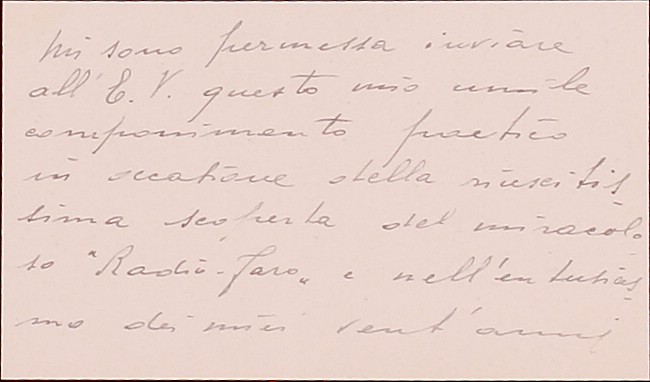 Mi sono permessa inviare
all'E. V. questo mio umile
componimento poetico
in occasione della riuscitis
sima scoperta del miracolo
so "Radio-Faro" e nell'entusias
mo dei miei vent'anni